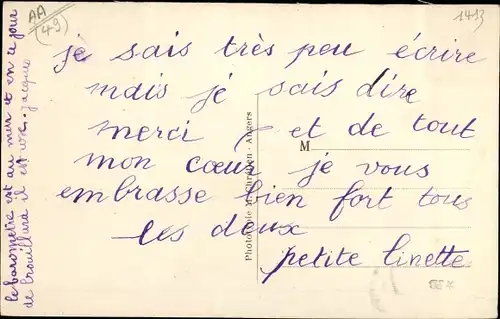 AA
(49)
1413
je sais très peu écrire
mais je sais dire
merci - et de tout
mon cœur je vous
embrasse bien fort tous
les deux
petite linette
M
Photographie - Angers
le baromètre est au mur et en ce jour
de brouillard il est . Jacques